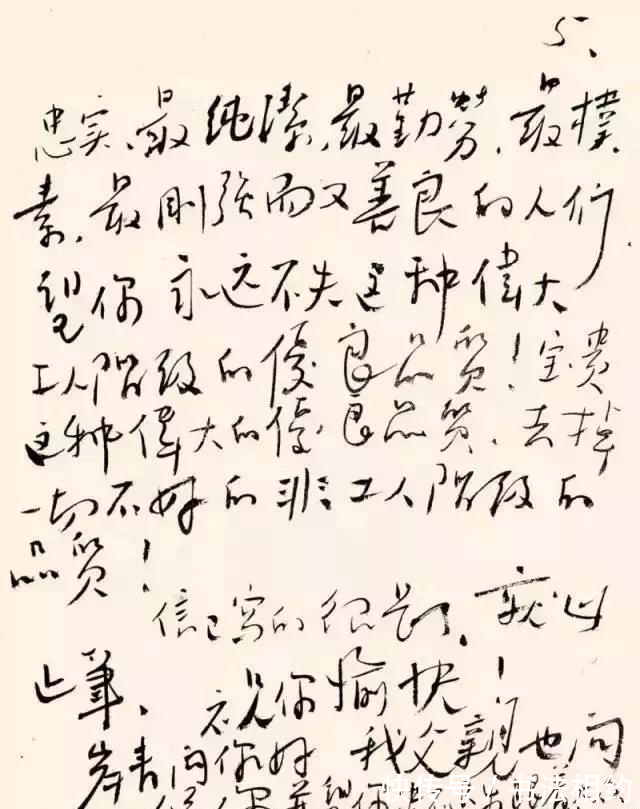 5、
忠实、最纯潔、最勤劳、最樸
素、最刚强而又善良的人们
望你永远不失这种偉大
工人阶级的優良品质！宝贵
这种偉大的優良品质、去掉
一切不好的非工人阶级的
品质！
信已写的很长了、就此
止筆、祝你愉快！
岸青问你好 我父親也问
快传号/书法相约